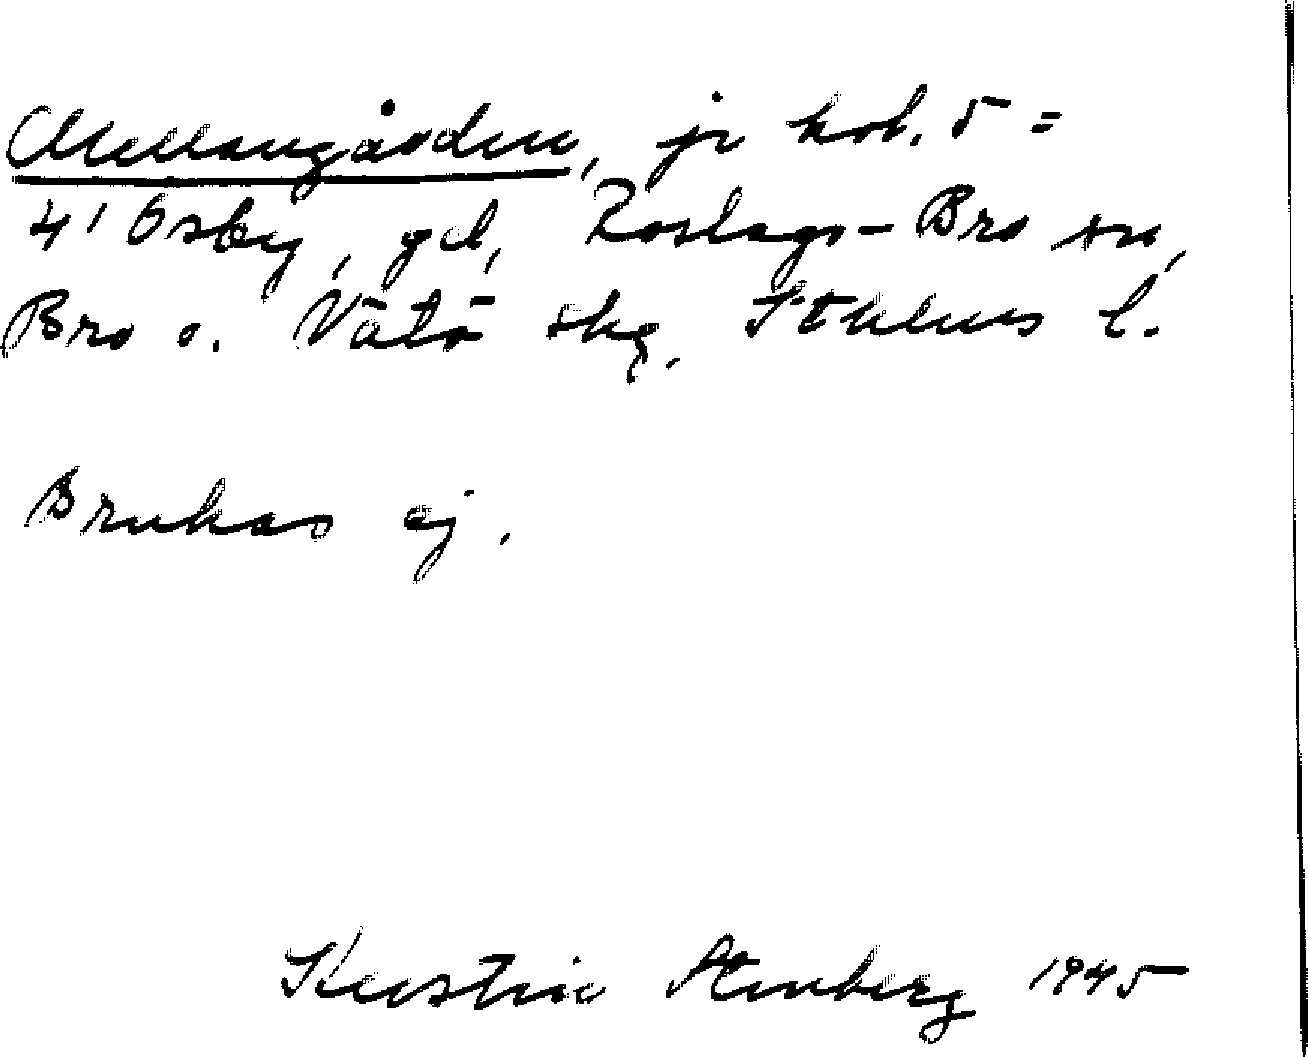 Mellangården, jr kob. 5 =
4' Osby, gd, Roslags-Bro sn,
Bro o. Vätö skg. Sthlms l.
Brukas ej.
Kerstin Stenberg 1945